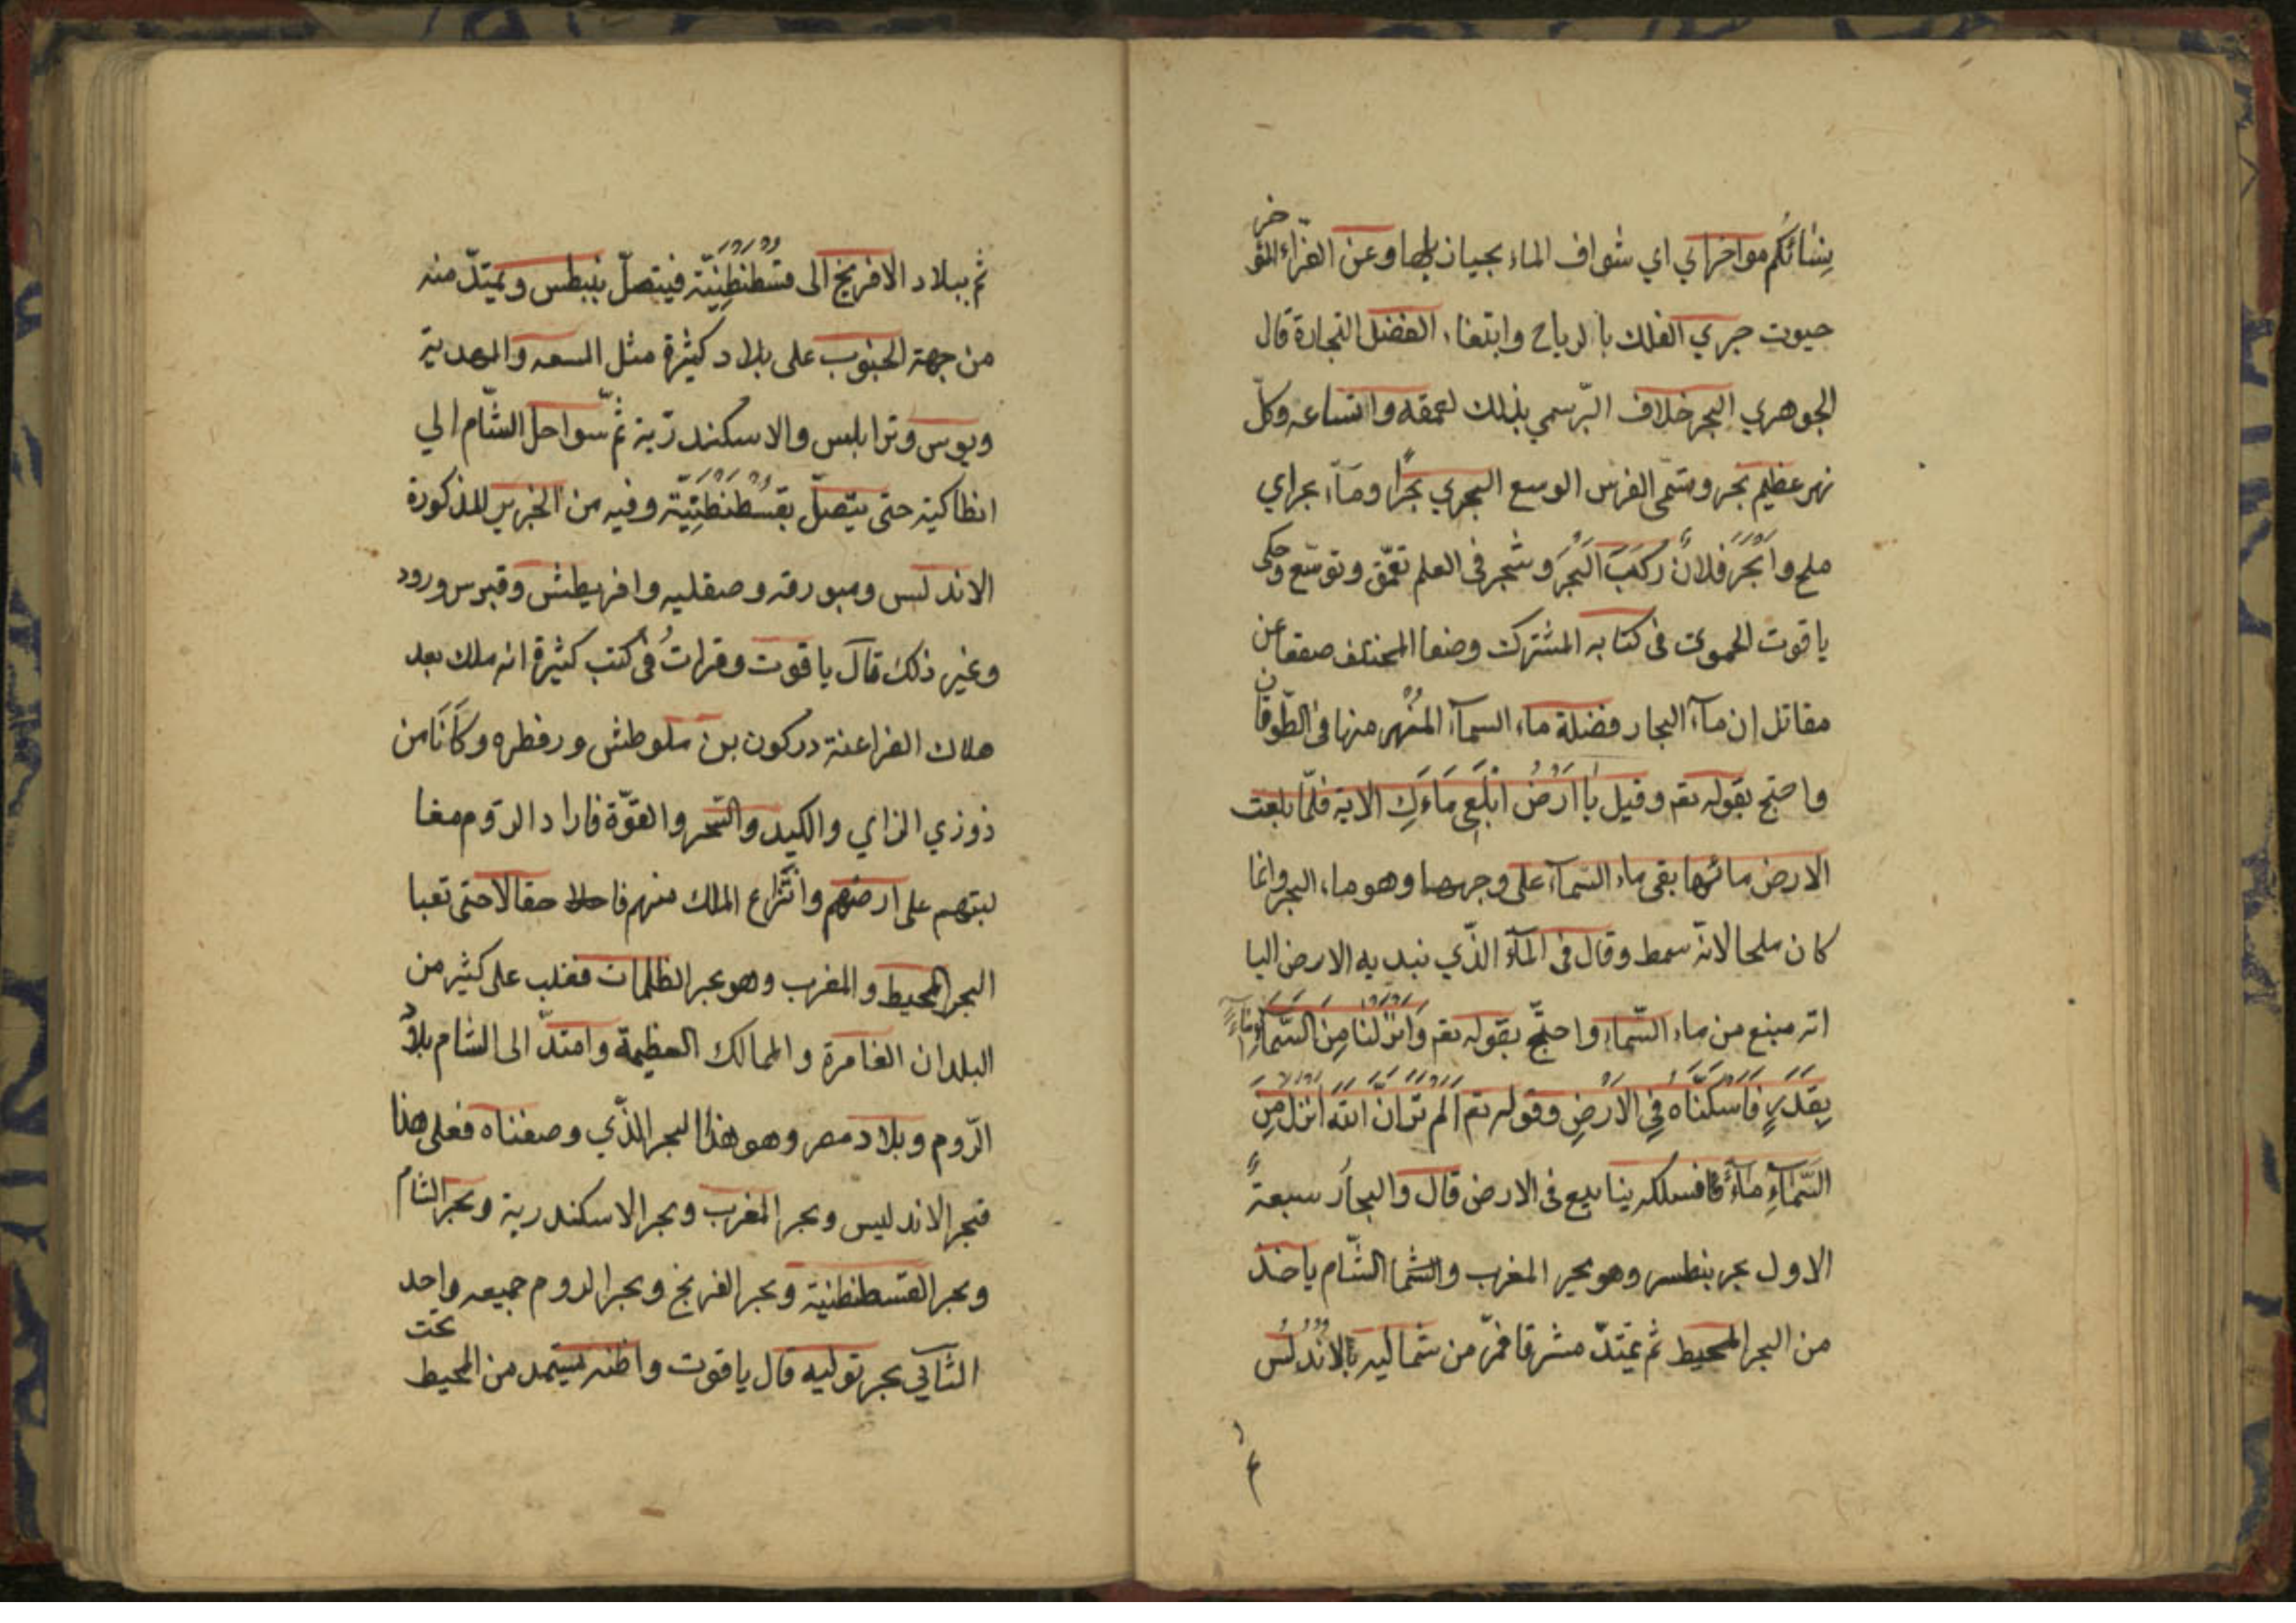 بنشائكم مواخرا بي اي شواف الماء بجيازيها وعن الفرّاء المؤخر
حيوت جري الفلك بالرياح وابتغاء الفضل التجارة قال
الجوهري البحر خلاف البرّ سمي بذلك لعمقه واتساعه وكلّ
نهر عظيم بحر وسمّى الفرس الوسع البحري بحرًا وماء بحراي
ملح وابحر فلانٌ ركب البحر وشجر في العلم تعمّق وتوسّع وحكى
ياقوت الحموى فى كتابه المشترك وضعا المختلف صقعا عن
مقاتل إن ماء البحار فضلة ماء السمآء المنهر منها فى الطّوفان
واحتج بقوله تعم وقيل يا ارض ابلعي ماءك الاية فلمّا بلعت
الارض مائها بقى ماء السّمآء على وجهها وهو ماء البحر وانما
كان ملحا لانه سمط وقال فى المآء الذّي نبد يه الارض اليا
انه مينع من ماء السّماء واحتجّ بقوله تعم وانزلنا من السّماء ماءً
بقدرٍ فاسكنّاه في الارض وقوله تعم الم تر انّ الله انزل من
السّمآء مآءً فافسلكه ينابيع فى الارض قال والبحار سبعة
الاول بحر بنطس وهو بحير المغرب والشما الشّام ياخذ
من البحر المحيط ثم يمتدّ مشرقا فمرّ من شماليه بالاندلس
ثم ببلاد الافرنج الى قسطنطنيّة فيتصلّ بنبطس ويمتدّ منه
من جهة الجنوب على بلاد كثيرة مثل السعه والمهدية
ويوس وترابلس والاسكندريّة ثمّ سواحل الشّام الي
انطاكية حتى يتّصلّ بقسطنطنيّة وفيه من الجزير المذكورة
الاندلس وميورقه وصقليه وافريطش وقبرس ورود
وغير ذلك قال ياقوت وقرات فى كتب كثيرة انه ملك بعد
هلاك الفراعنة دركون بن ملوطش ورفطره وكانا من
ذوزي الزاي والكيد والسّحر والقوّة فاراد الرّوم مغا
لبتهم على ارضهم وانتزاع الملك منهم فاحلا حقالا حتى تعبا
البحر المحيط والمغرب وهو بحر الظلمات فغلب على كثير من
البلدان الغامرة والممالك العظيمة وامتدّ الى الشام بلاد
الرّوم وبلاد مصر وهو هذا البحر الذّي وصفناه فعلى هذا
فبحر الاندليس وبحر المغرب وبحر الاسكندرية وبحر الشام
وبحر القسطنطنية وبحر الفرنج وبحر الروم جميعه واحد
الثاني بحر توليه قال ياقوت واظنه يستمد من المحيط تحت